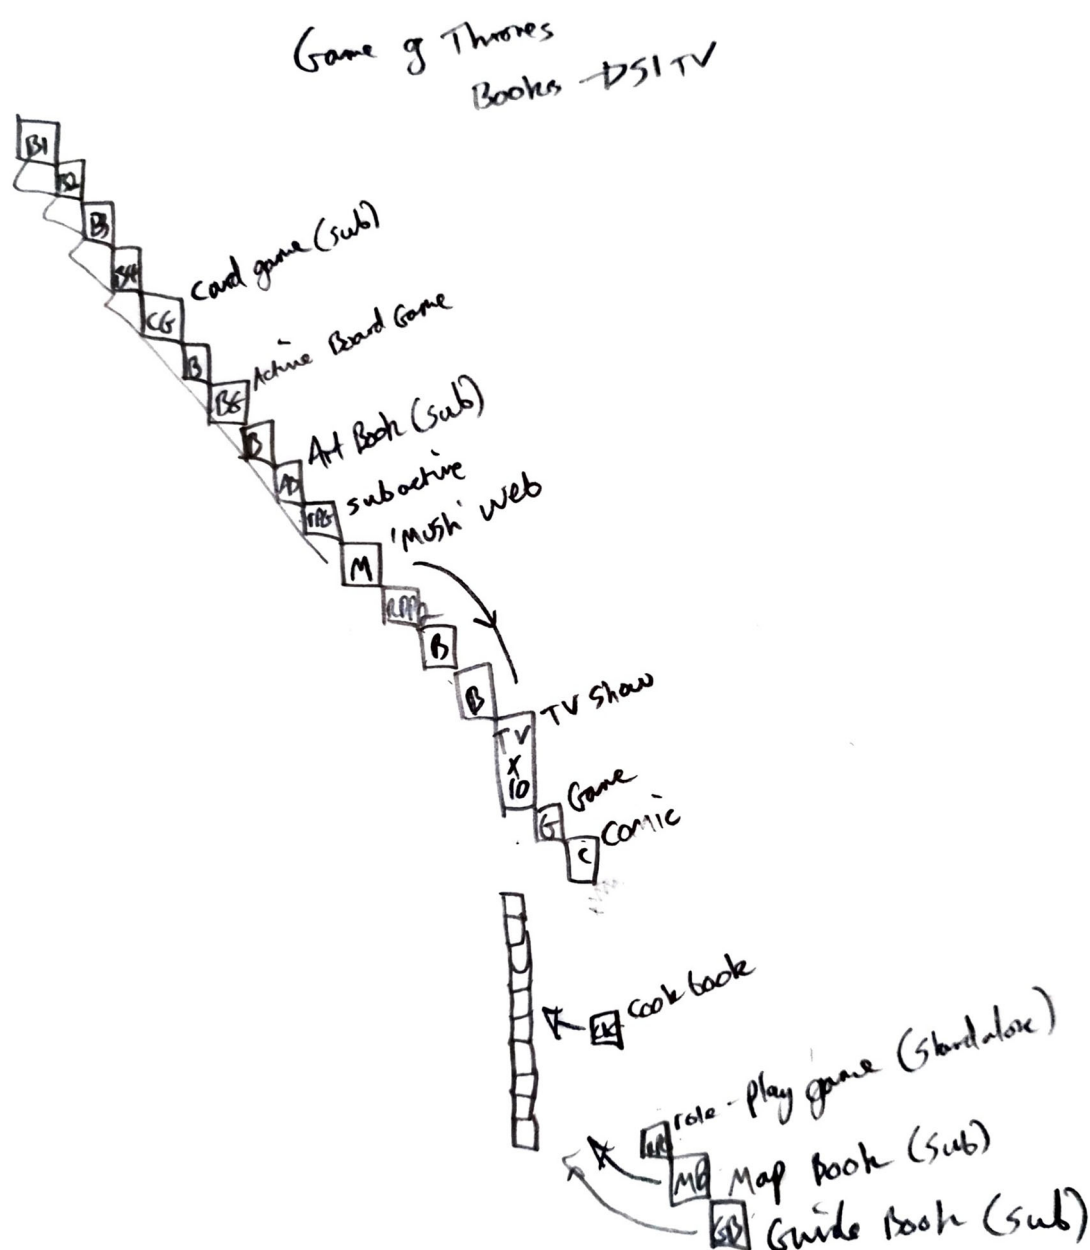 Game of Thrones
Books DSI TV
B1
B2
B3
B4
Card game (sub)
CG
B
Active Board Game
BG
B
Art Book (sub)
AB
sub active
RPG
'Mush' Web
M
B
B
TV Show
TV
X
10
Game
G
Comic
C
Cook book
role-play game (standalone)
MB
Map Book (sub)
GB
Guide Book (sub)